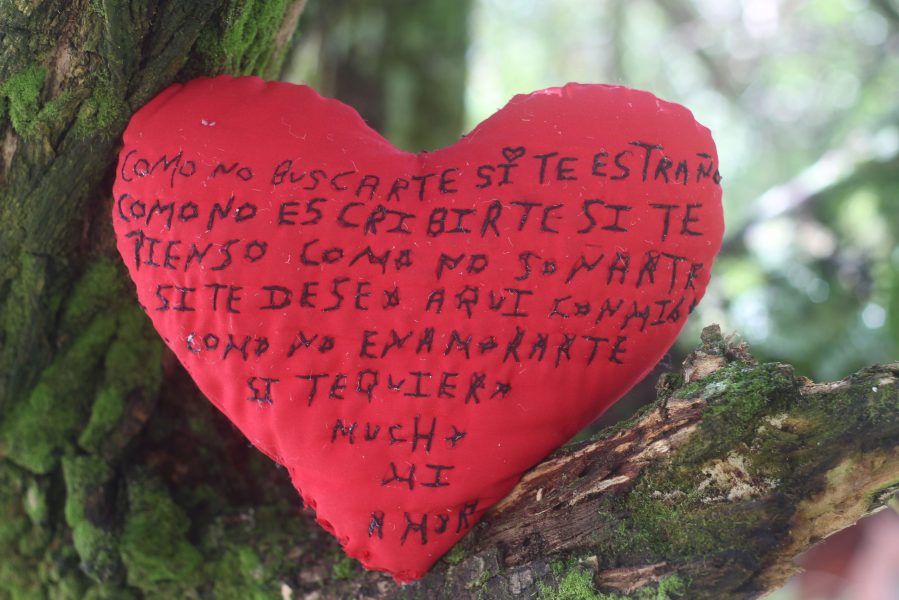 COMO NO BUSCARTE SI TE ESTRAÑO
COMO NO ESCRIBIRTE SI TE
PIENSO COMO NO SOÑARTE
SI TE DESEO AQUI CONMIGO
COMO NO ENAMORARTE
SI TE QUIERO
MUCHO
MI
AMOR